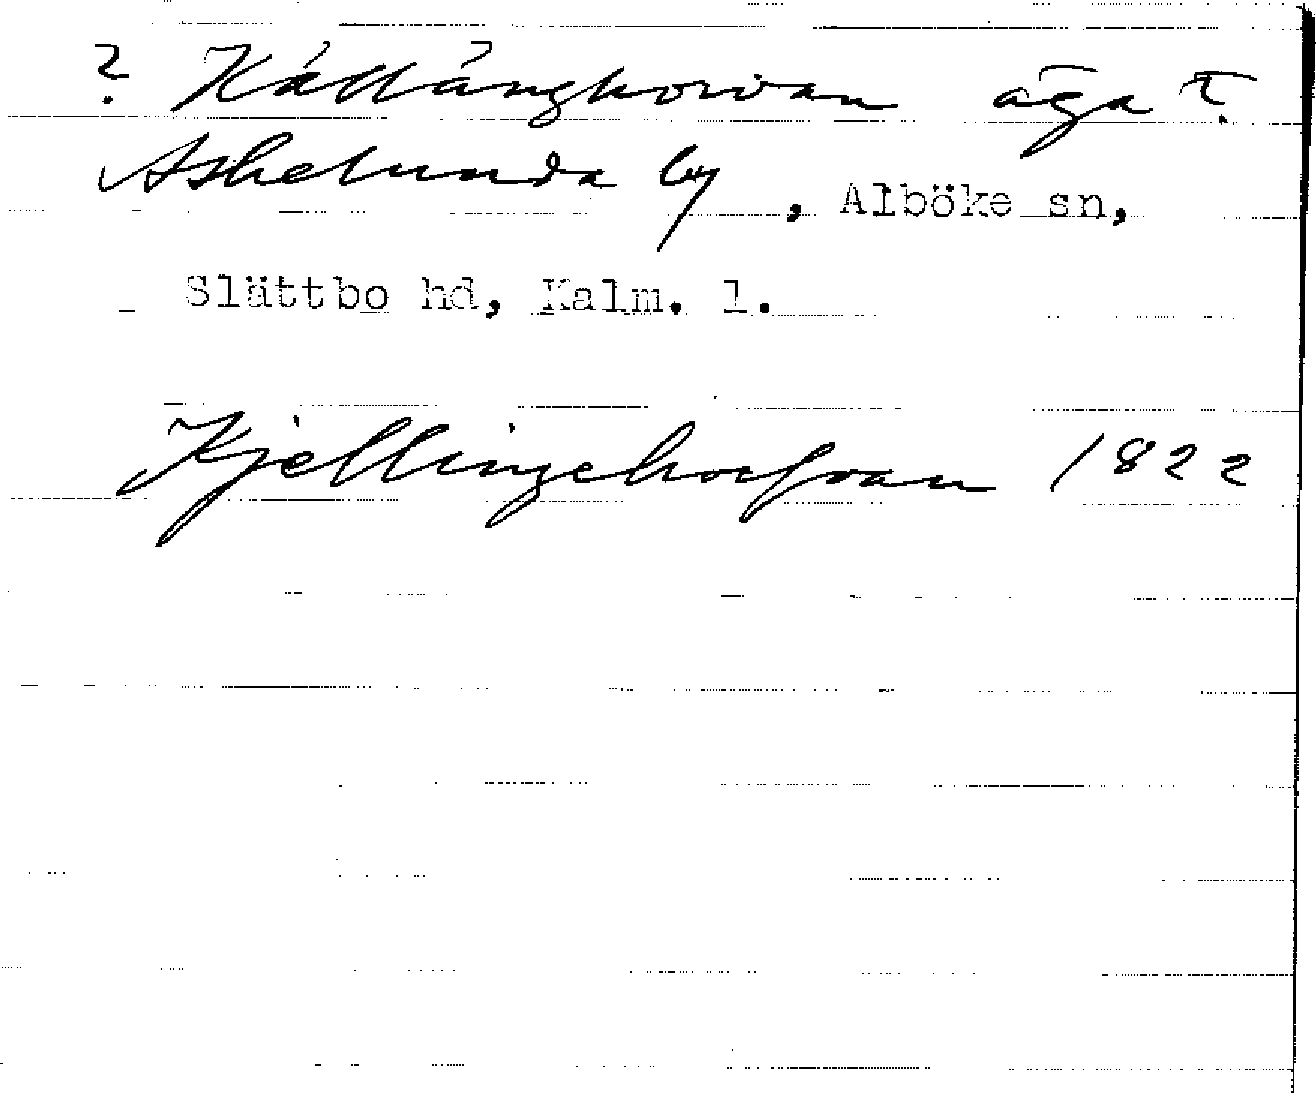 ? Källänghorvan äga t.
Askelunda by, Alböke sn,
Slättbo hd, Kalm. l.
Kjellingehorfvan 1822